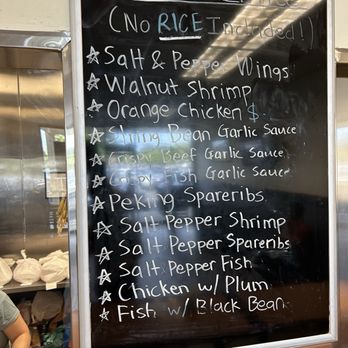 (No RICE Included!)
☆ Salt & Pepper Wings
☆ Walnut Shrimp
☆ Orange Chicken $
☆ String Bean Garlic Sauce
☆ Crispy Beef Garlic Sauce
☆ Crispy Fish Garlic Sauce
☆ Peking Spareribs
☆ Salt Pepper Shrimp
☆ Salt Pepper Spareribs
☆ Salt Pepper Fish
☆ Chicken w/ Plum
☆ Fish w/ Black Bean